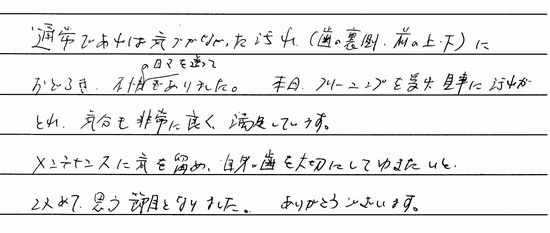 通常であれば気づかなかった汚れ(歯の裏側、前の上・下)に
おどろき、の日々を送って不快でありました。 本日、クリーニングを受け見事に汚れが
とれ、気分も非常に良く、満足しています。
メンテナンスに気を留め、自身の歯を大切にしてゆきたいと、
改めて思う節目となりました。 ありがとうございます。